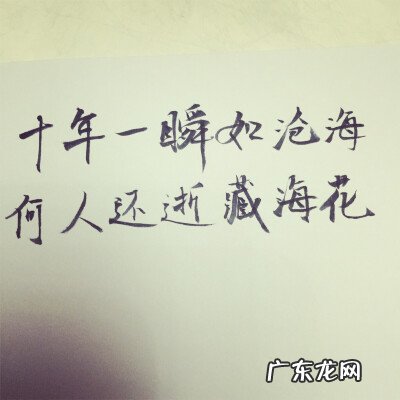 十年一瞬如沧海
何人还逝藏海花
广东龙网